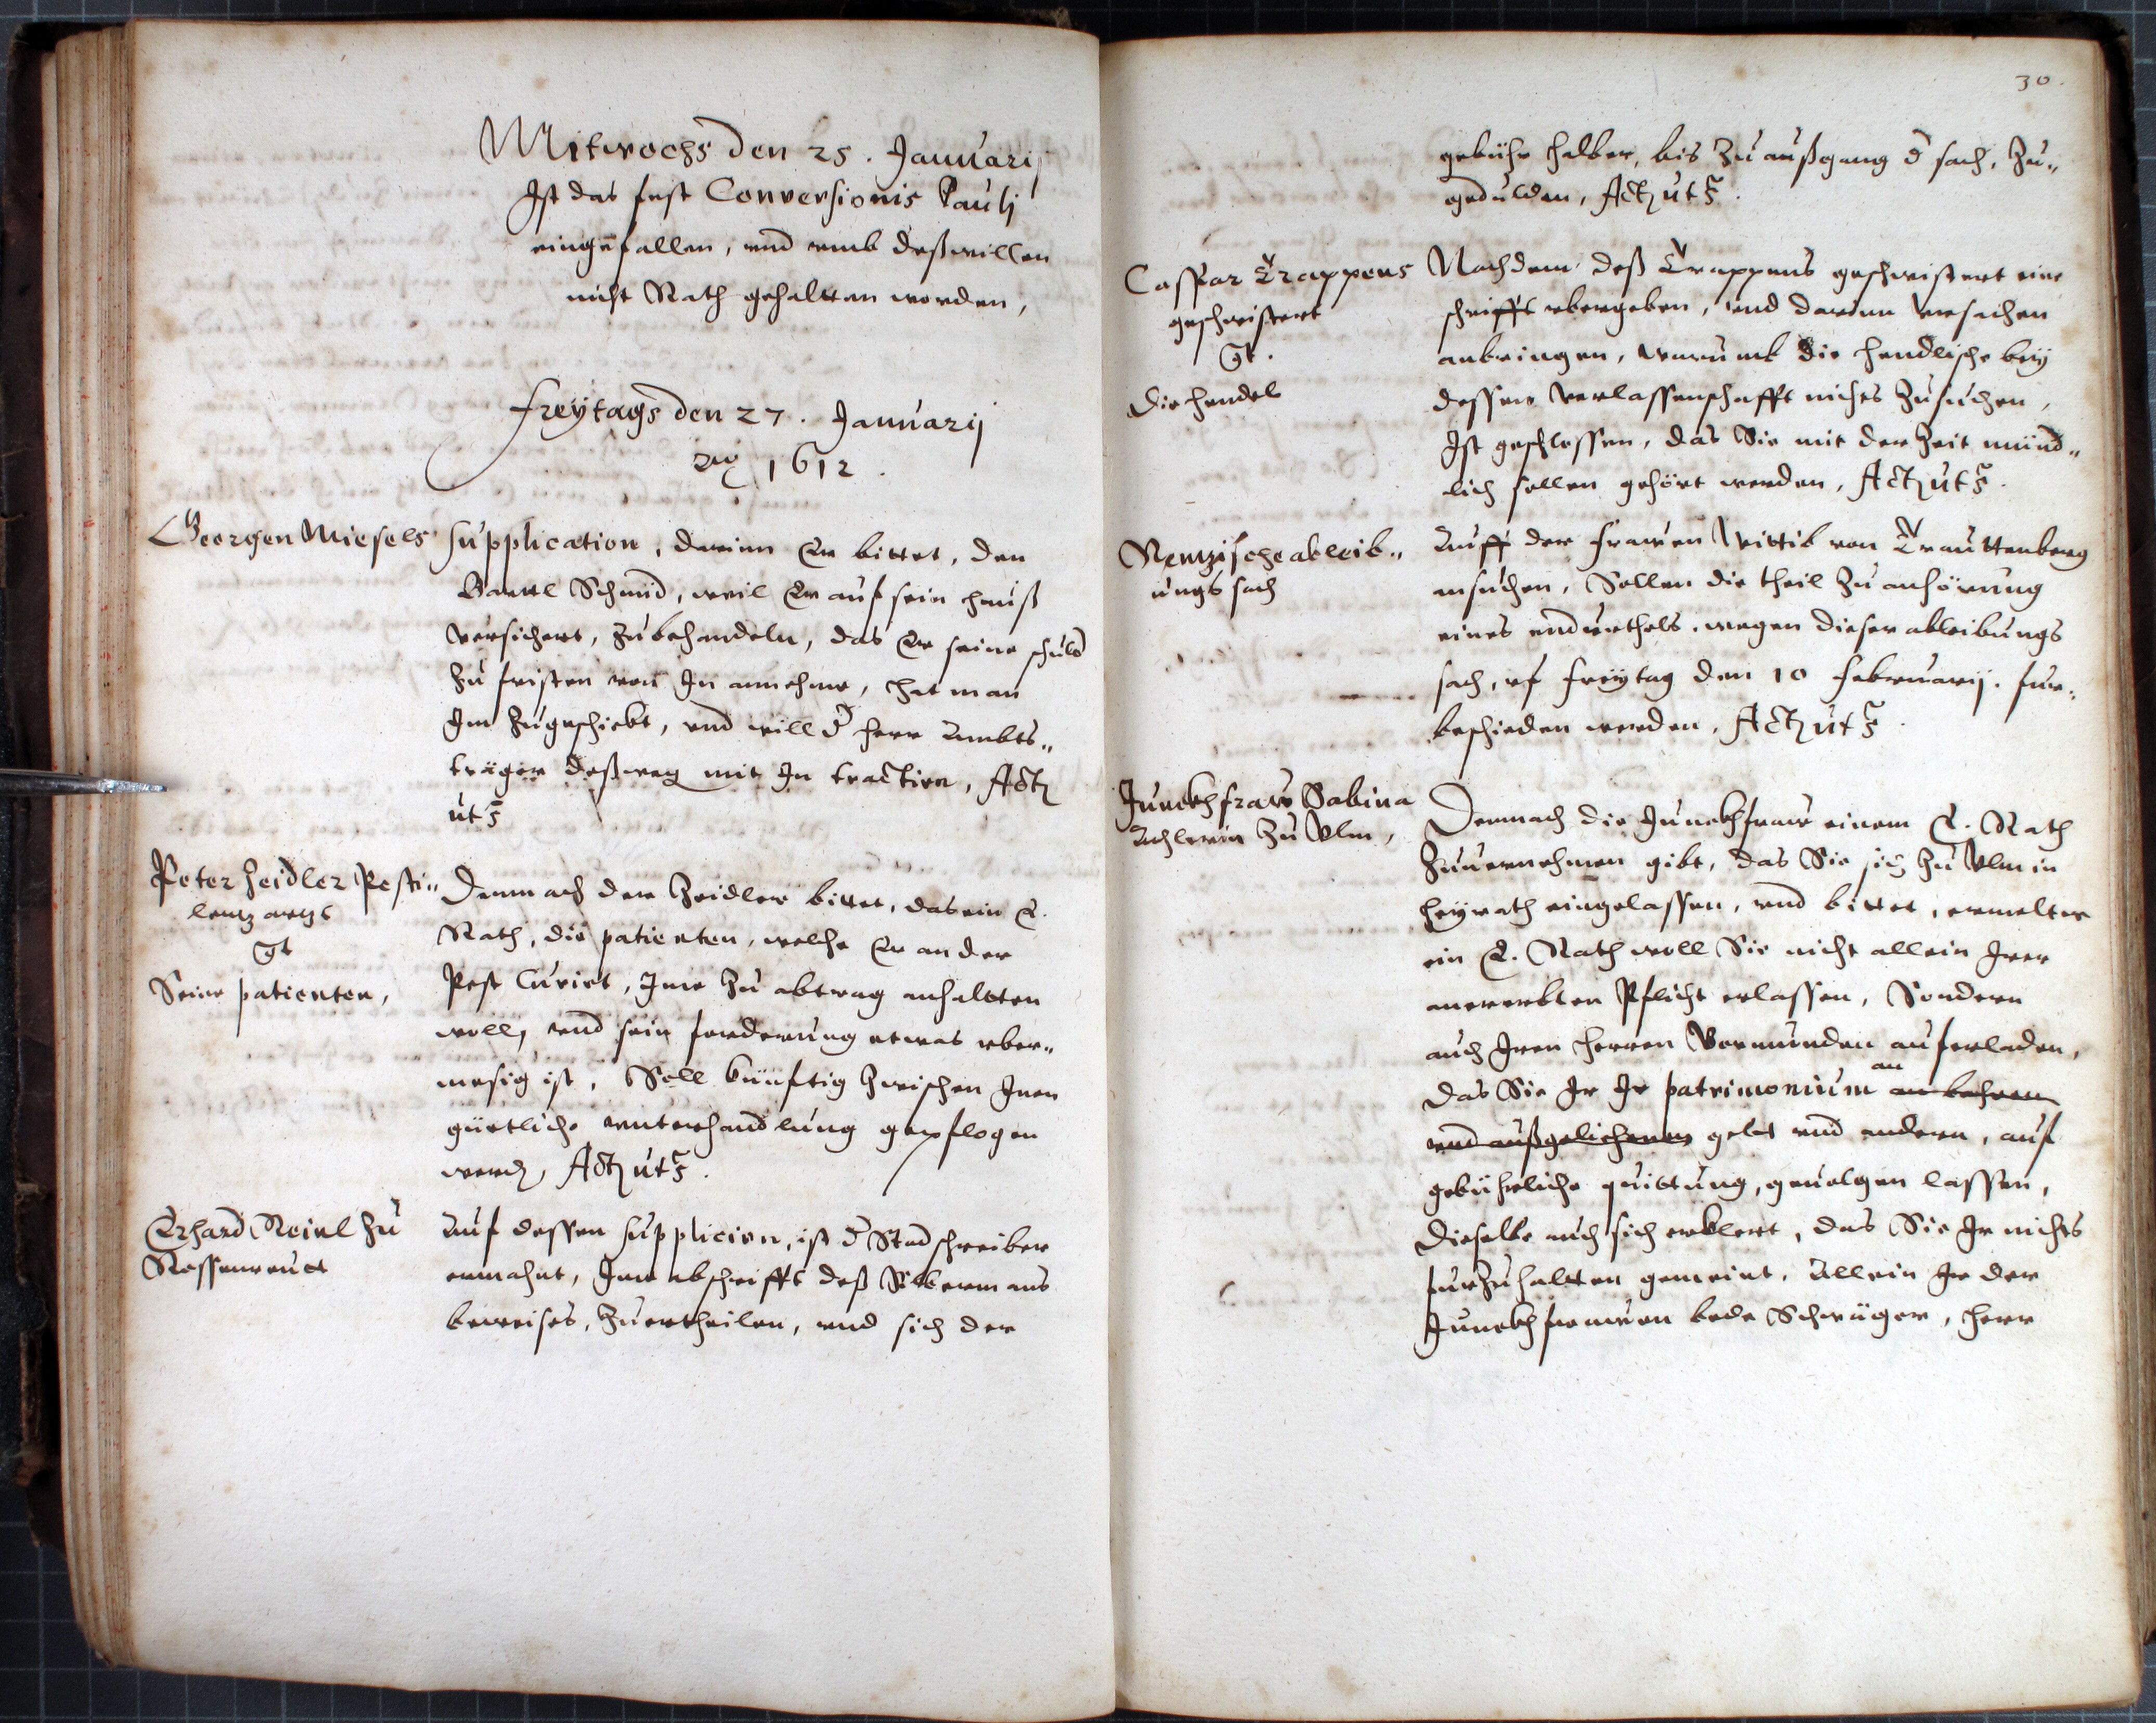 Mitwochs den 25. Januarij
Ist das fest Conversionis Paulj
eingefallen, vnd vmb deßwillen
nicht Rath gehaltten worden,
Freÿtags den 27. Januarij
1612.
Georgen Miesels
Supplication, darinn Er bittet, den
Barttl Schmid, weil Er auf sein hauß
versichert, zubehandeln, das Er seine schuld
zu fristen von In anneme, hat man
Im zugeschickt, vnd will d herr Ambts„
träger deßweg mit In tractirn, Act
ut s
Peter Zeidler Pesti„
lentz artzt
gt
Seine patienten,
Demnach der Zeidler bittet, das ein E.
Rath, die patienten, welche Er an der
Pest Curirt, Ime zu abtrag anhaltten
woll, vnd sein forderung etwas vber„
mesig ist, Soll künftig zwischen Inen
güetliche vnterhandlung gepflogen
werd, Act ut s.
Erhard Reinl zu
Auf dessen supplicirn, ist d Stadschreiber
ermahnt, Ime abschrifft deß Silbermans
beweises, zuertheilen, vnd sich der
30.
gebühr halber, bis zu außgang d sach, zu„
gedulden, Act ut s.
Caspar Trappens
geschwistert
gt.
Die Hendel
Nachdem deß Trappens geschwistert eine
schrifft vbergeben, vnd darinn vrsachen
anbringen, warumb die Hendlische beÿ
dessen verlassenschafft nichts zusuchen,
Ist geschlossen, das Sie mit der Zeit münd„
lich sollen gehört werden, Act ut s.
ableib„
ungs sach
Auff der frawen Wittib von Trauttenberg
ansuchen, Sollen die theil zu anhörung
eines endurthels, wegen dieser ableibungs
sach, vf freÿtag den 10 Februarij. fur„
beschieden werden, Act ut s.
Junckhfraw Sabina
zu Vlm,
Demnach die Junckhfraw einem E. Rath
zuuernehmen gibt, das Sie sich zu Vlm in
heÿrath eingelassen, vnd bittet, ermelter
ein E. Rath woll Sie nicht allein Irer
anererbten Pflicht erlassen, Sondern
auch Iren herren Vormunden auferladen,
das Sie Ir Ir patrimonium an
vnd außgelichenen gelt vnd andern, auf
gebührliche quittung, geuolgen lassen,
Dieselbe auch sich erklert, das Sie Ir nichts
furzuhaltten gemeint, Allein Ir der
Junckhfrawen bede Schwäger, herr